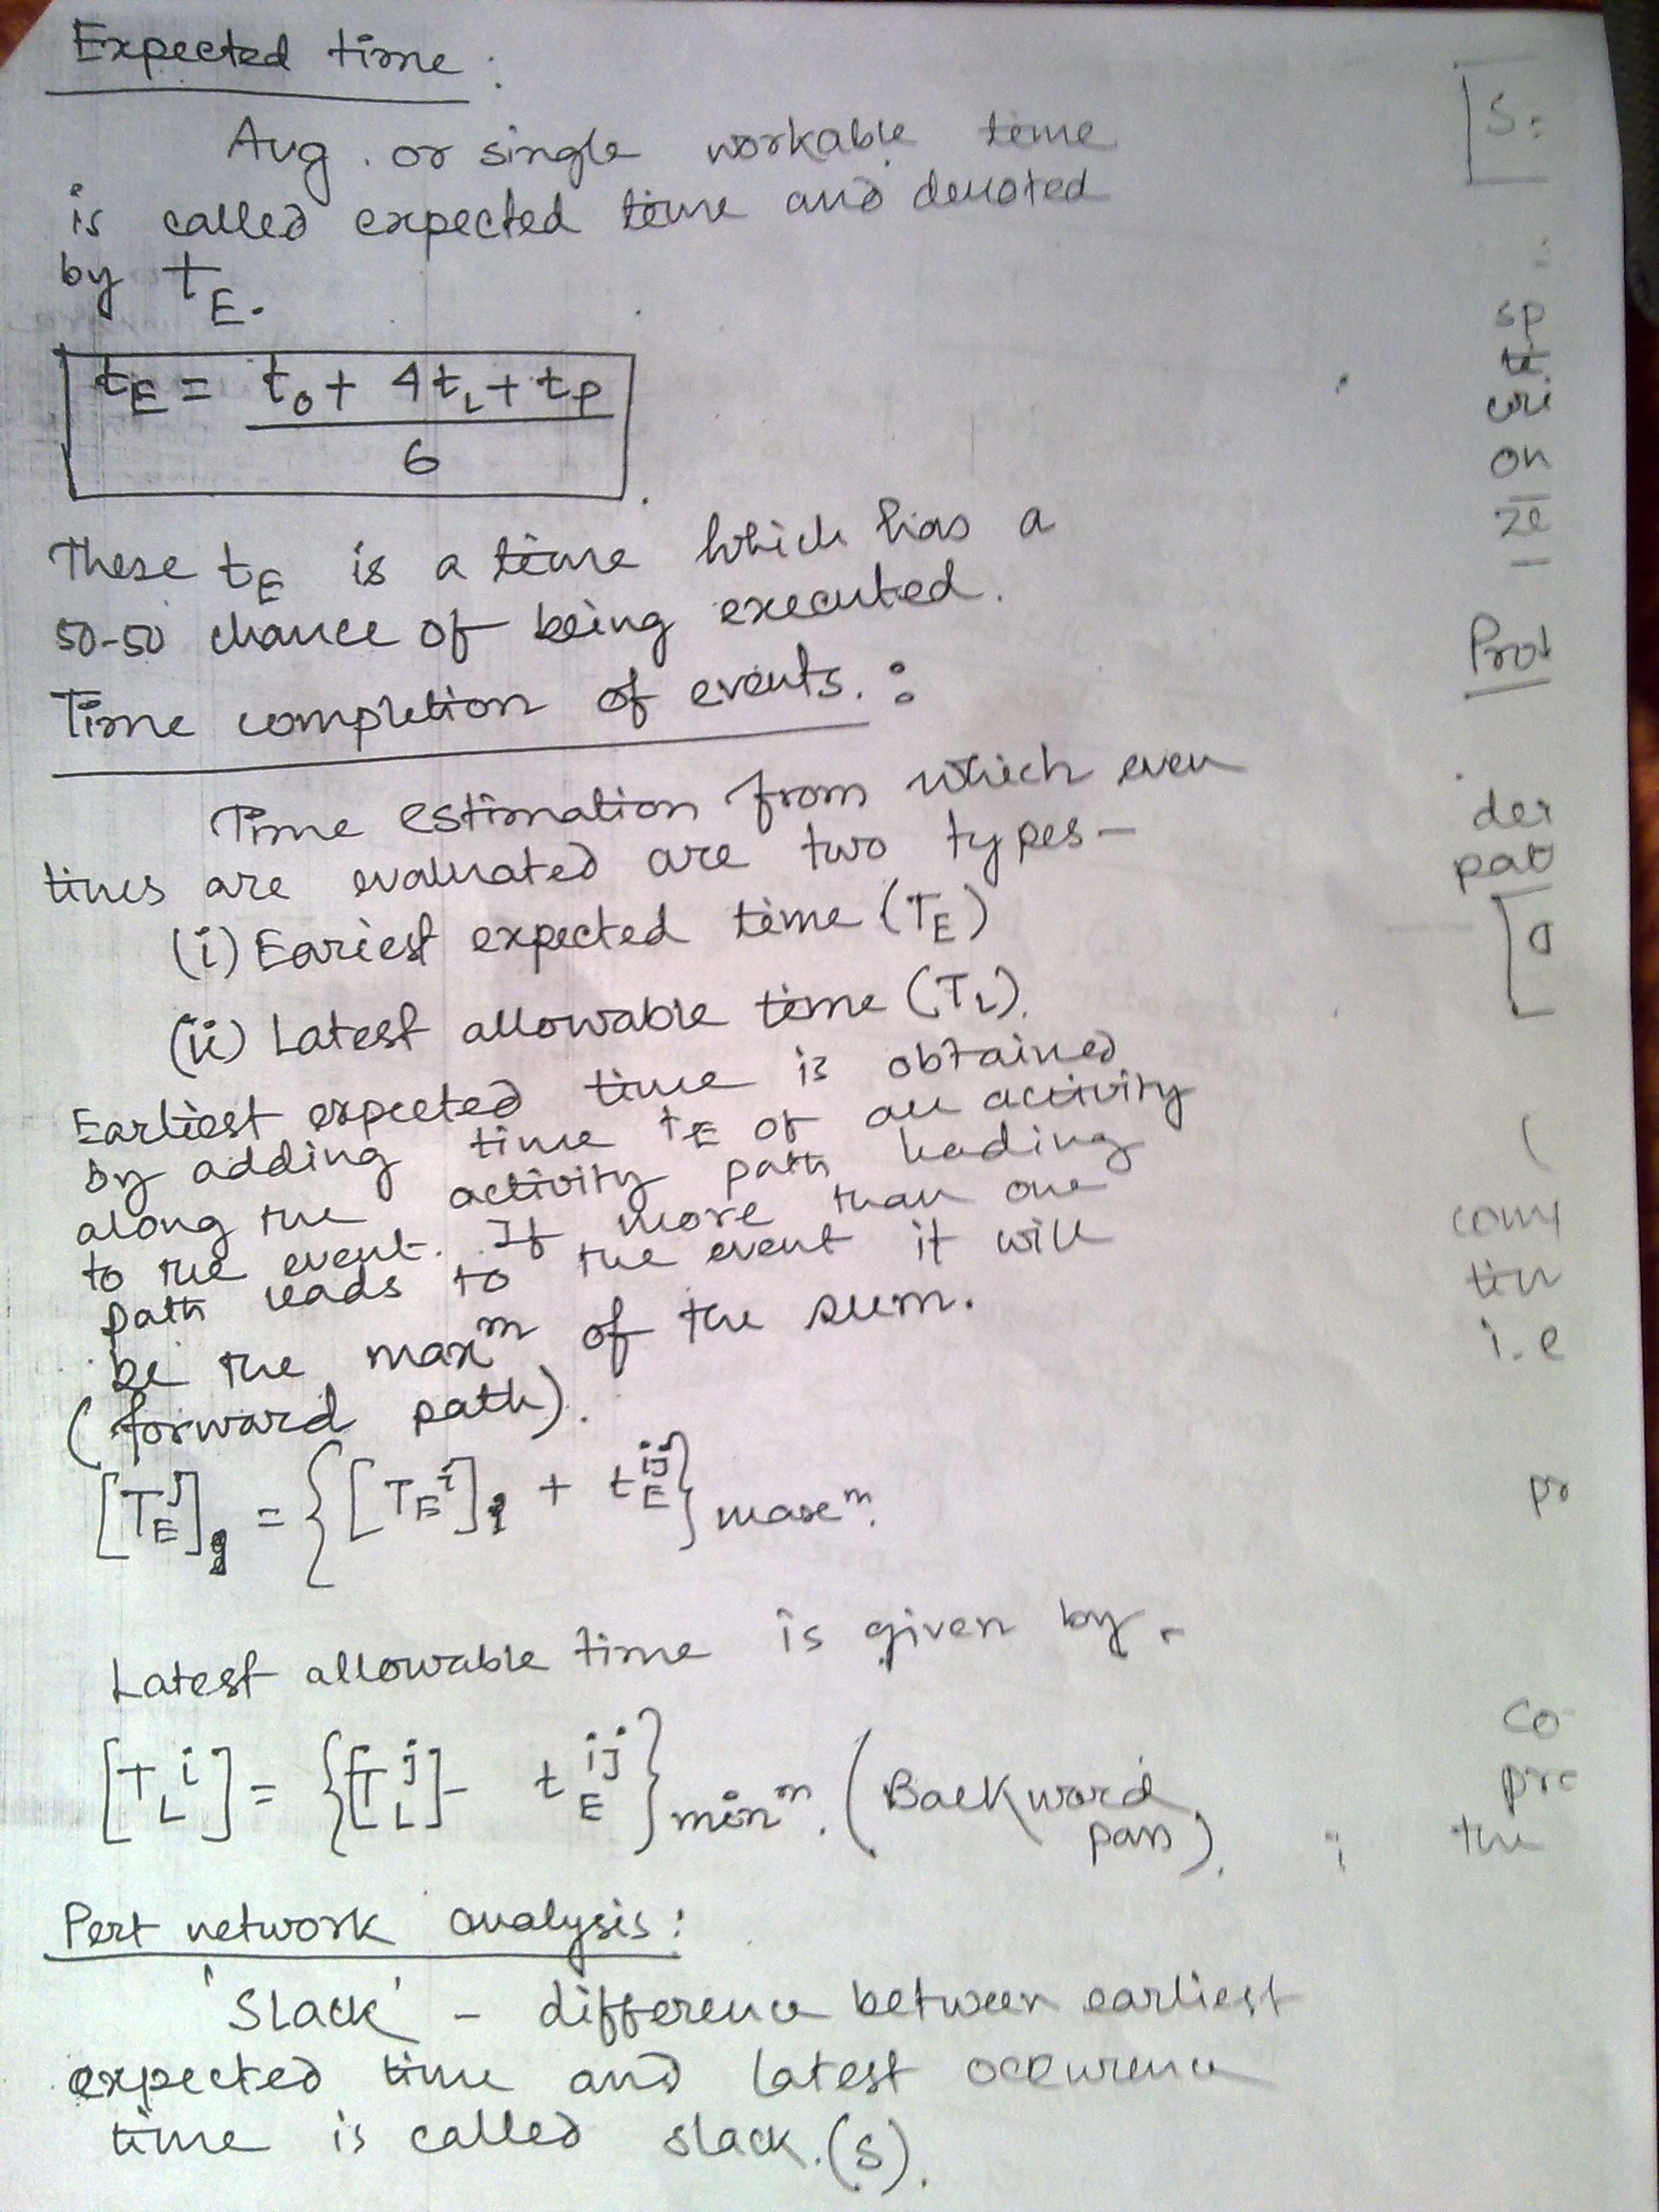 Expected time :
Avg. or single workable time
is called expected time and denoted
by tE.
tE = to + 4tL + tP
6
These tE is a time which has a
50-50 chance of being executed.
Time completion of events. :
Time estimation from which even
times are evaluated are two types-
(i) Eariest expected time (TE)
(ii) Latest allowable time (TL).
Earliest expected time is obtained
by adding time tE of all activity
along the activity path leading
to the event. If more than one
path leads to the event it will
be the max^m of the sum.
(forward path).
[TE^j] = {[TE^i] + tE^ij} max^m.
Latest allowable time is given by -
[TL^i] = {[TL^j] - tE^ij} min^m. (Backward
pass).
Pert network analysis :
'Slack' - difference between earliest
expected time and latest occurence
time is called slack. (S).
[S =
sp
on
ze
Prob
der
pat
(
com
tim
i.e
pr
co
pre
the